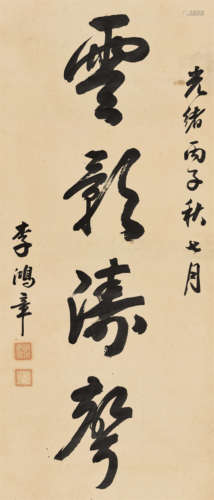 光緒丙子秋七月
雲影濤聲
李鴻章